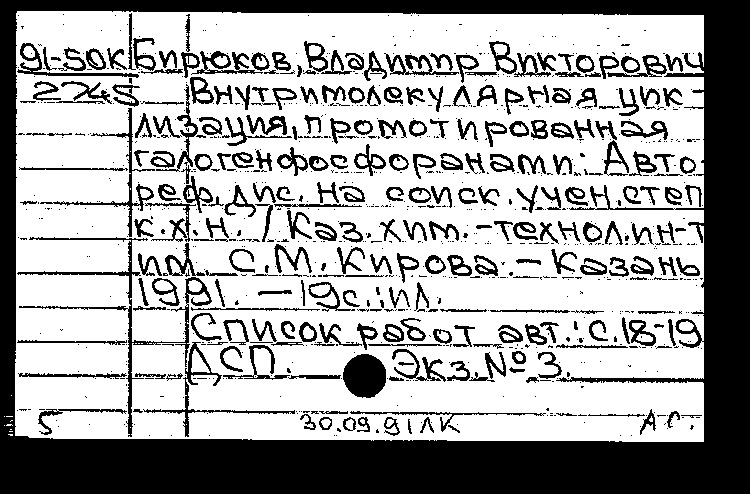 91-50К Бирюков, Владимир Викторович
2245 Внутримолекулярная цик-
лизация, промотированная
галогенфосфоранами: Авто-
реф. дис. на соиск. учен. степ
к.х.н. / Каз. хим.-технол. ин-т
им. С.М. Кирова. - Казань,
1991. - 19с.: ил.
Список работ авт.: с. 18-19
ДСП. Экз. № 3.
5 30.09.91 ЛК АС.